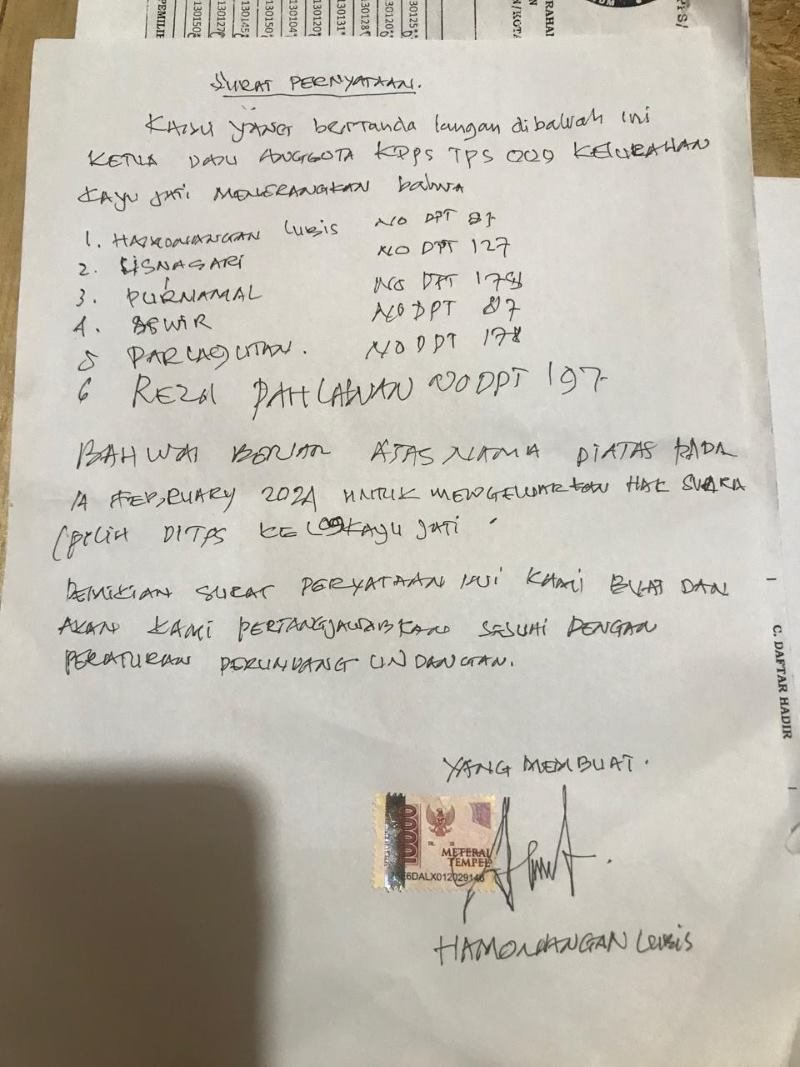 SURAT PERNYATAAN.
KAMI YANG bertanda tangan dibawah ini
KETUA DAN ANGGOTA KPPS TPS 009 KELURAHAN
KAYU JATI MENERANGKAN bahwa
1. HAMONANGAN Lubis NO DPT 87
2. LISNASARI NO DPT 127
3. PURNAMAL NO DPT 178
4. ASWIR NO DPT 87
5 PARLAGUTAN. NO DPT 178
6 REZA PAHLAWAN NO DPT 197
BAHWA BENAR ATAS NAMA DIATAS PADA
14 FEBRUARY 2024 UNTUK MENGELUARKAN HAK SUARA
PILIH DITPS 09 KEL KAYU JATI
DEMIKIAN SURAT PERYATAAN INI KAMI BUAT DAN
AKAN KAMI PERTANGJAWABKAN SESUAI DENGAN
PERATURAN PERUNDANG UNDANGAN.
YANG MEMBUAT.
10000
METERAI
TEMPEL
DALX012029146
HAMONANGAN Lubis
C. DAFTAR HADIR
PEMILIH